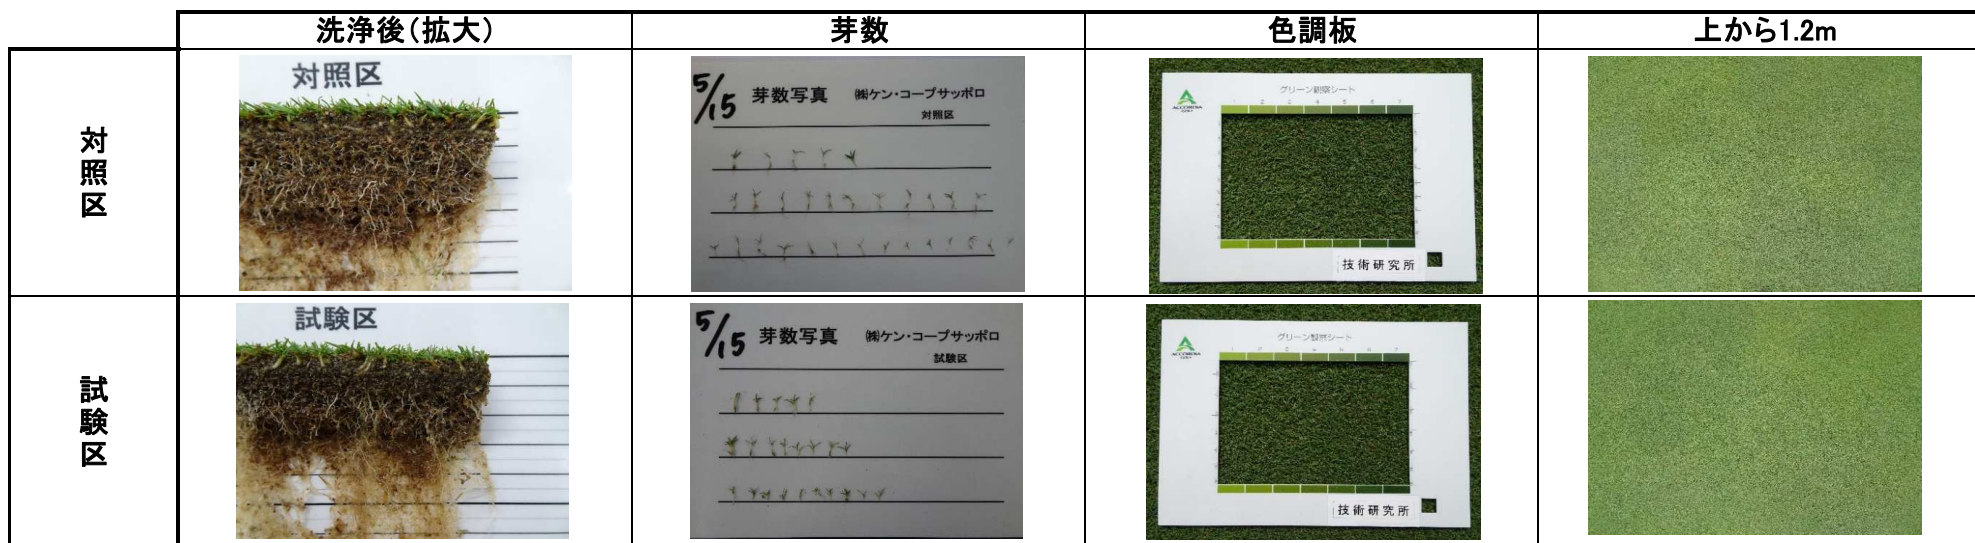 洗浄後（拡大）
芽数
色調板
上から1.2m
対照区
対照区
5/15 芽数写真 ㈱ケン・コープサッポロ
対照区
ACCORDIA
GOLF
グリーン観察シート
1 2 3 4 5 6 7
技術研究所
試験区
試験区
5/15 芽数写真 ㈱ケン・コープサッポロ
試験区
ACCORDIA
GOLF
グリーン観察シート
技術研究所